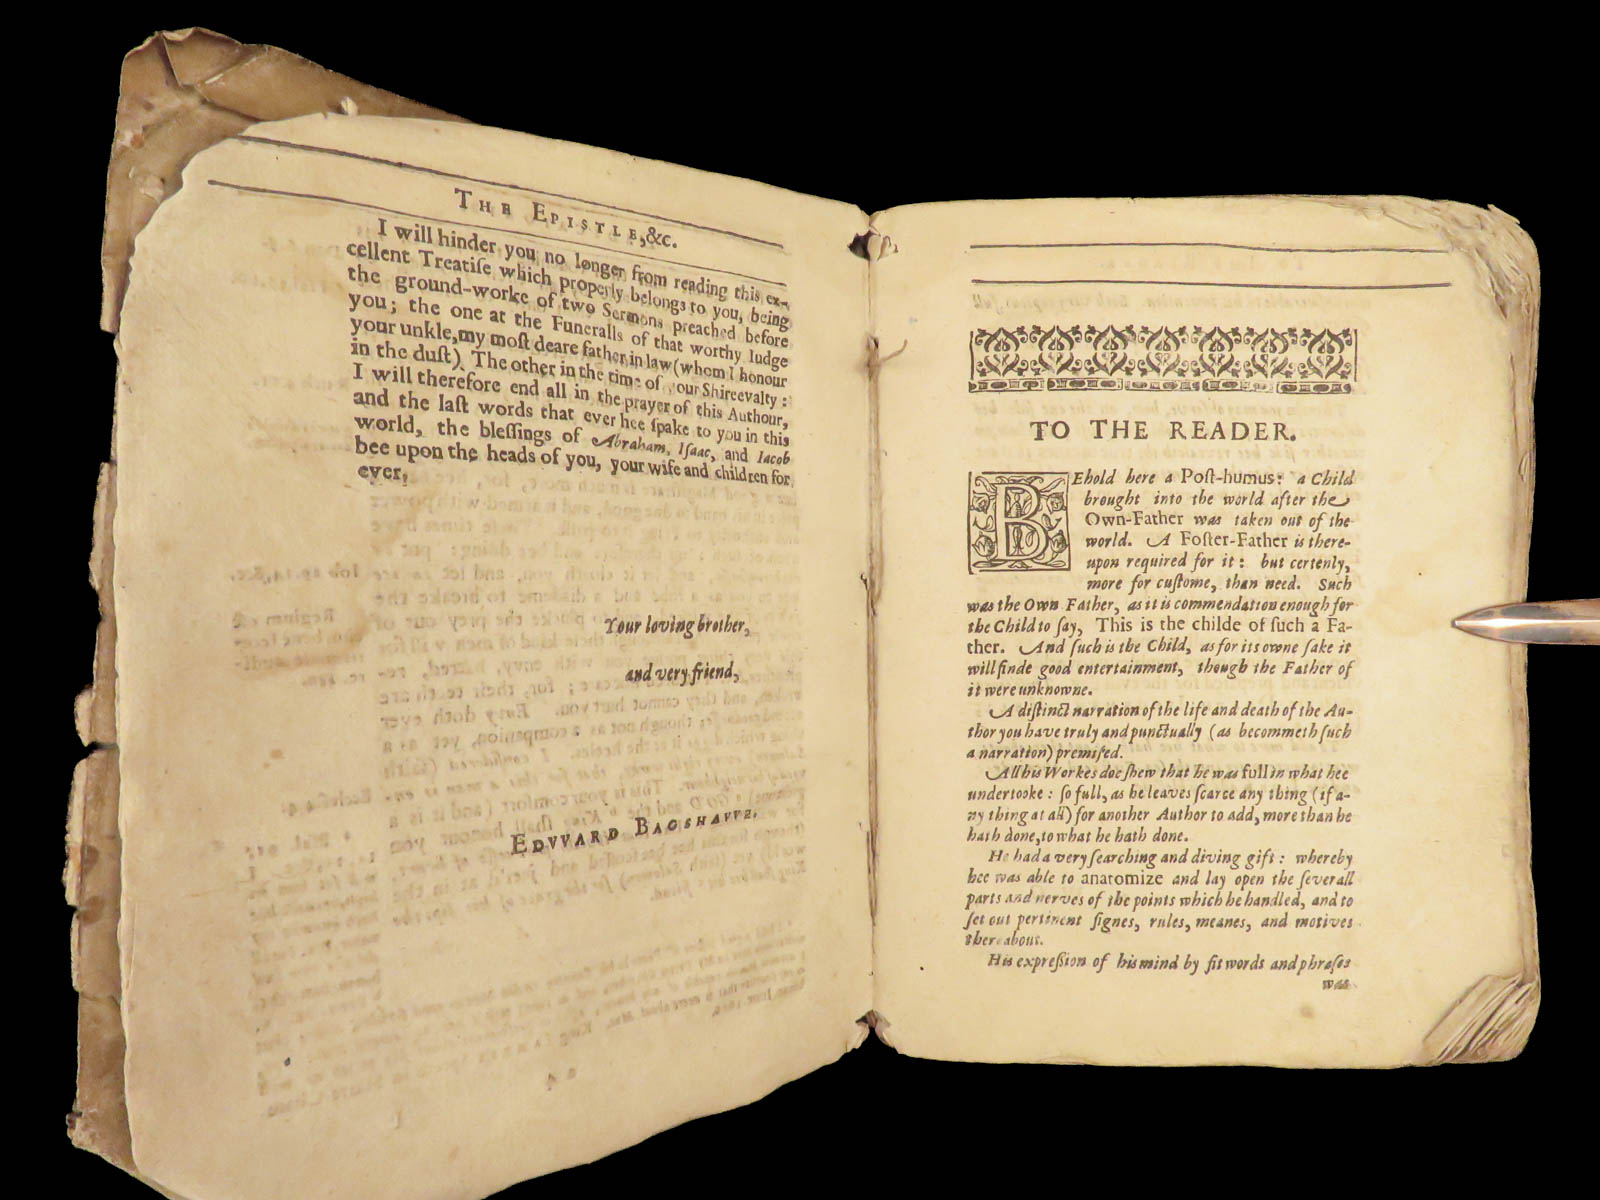 THE EPISTLE,&c.
I will hinder you no longer from reading this ex-
cellent Treatiſe which properly belongs to you, being
the ground-worke of two Sermons preached before
you; the one at the Funeralls of that worthy Iudge
your unkle,my moſt deare father in law(whom I honour
in the duſt) The other in the time of your Shireevalty:
I will therefore end all in the prayer of this Authour,
and the laſt words that ever hee ſpake to you in this
world, the bleſſings of Abraham, Iſaac, and Iacob
bee upon the heads of you, your wife and children for
ever,
Your loving brother,
and very friend,
EDVVARD BAGSHAVVE.
TO THE READER.
BEhold here a Poſt-humus: a Child
brought into the world after the
Own-Father was taken out of the
world. A Foſter-Father is there-
upon required for it: but certenly,
more for cuſtome, than need. Such
was the Own Father, as it is commendation enough for
the Child to ſay, This is the childe of ſuch a Fa-
ther. And ſuch is the Child, as for its owne ſake it
will finde good entertainment, though the Father of
it were unknowne.
A diſtinct narration of the life and death of the Au-
thor you have truly and punctually (as becommeth ſuch
a narration) premiſed.
All his Workes doe ſhew that he was full in what hee
undertooke: ſo full, as he leaves ſcarce any thing (if a-
ny thing at all) for another Author to add, more than he
hath done,to what he hath done.
He had a very ſearching and diving gift: whereby
hee was able to anatomize and lay open the ſeverall
parts and nerves of the points which he handled, and to
ſet out pertinent ſignes, rules, meanes, and motives
thereabout.
His expreſſion of his mind by fit words and phraſes
was